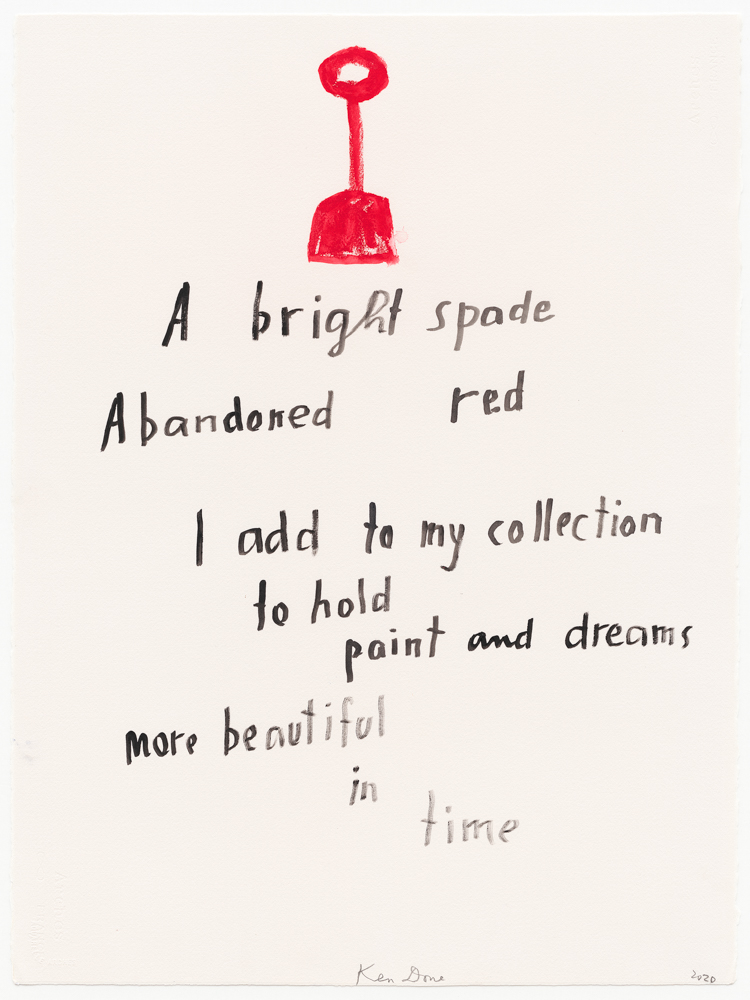 A bright spade
Abandoned red
I add to my collection
to hold
paint and dreams
more beautiful
in
time
Ken Done
2020